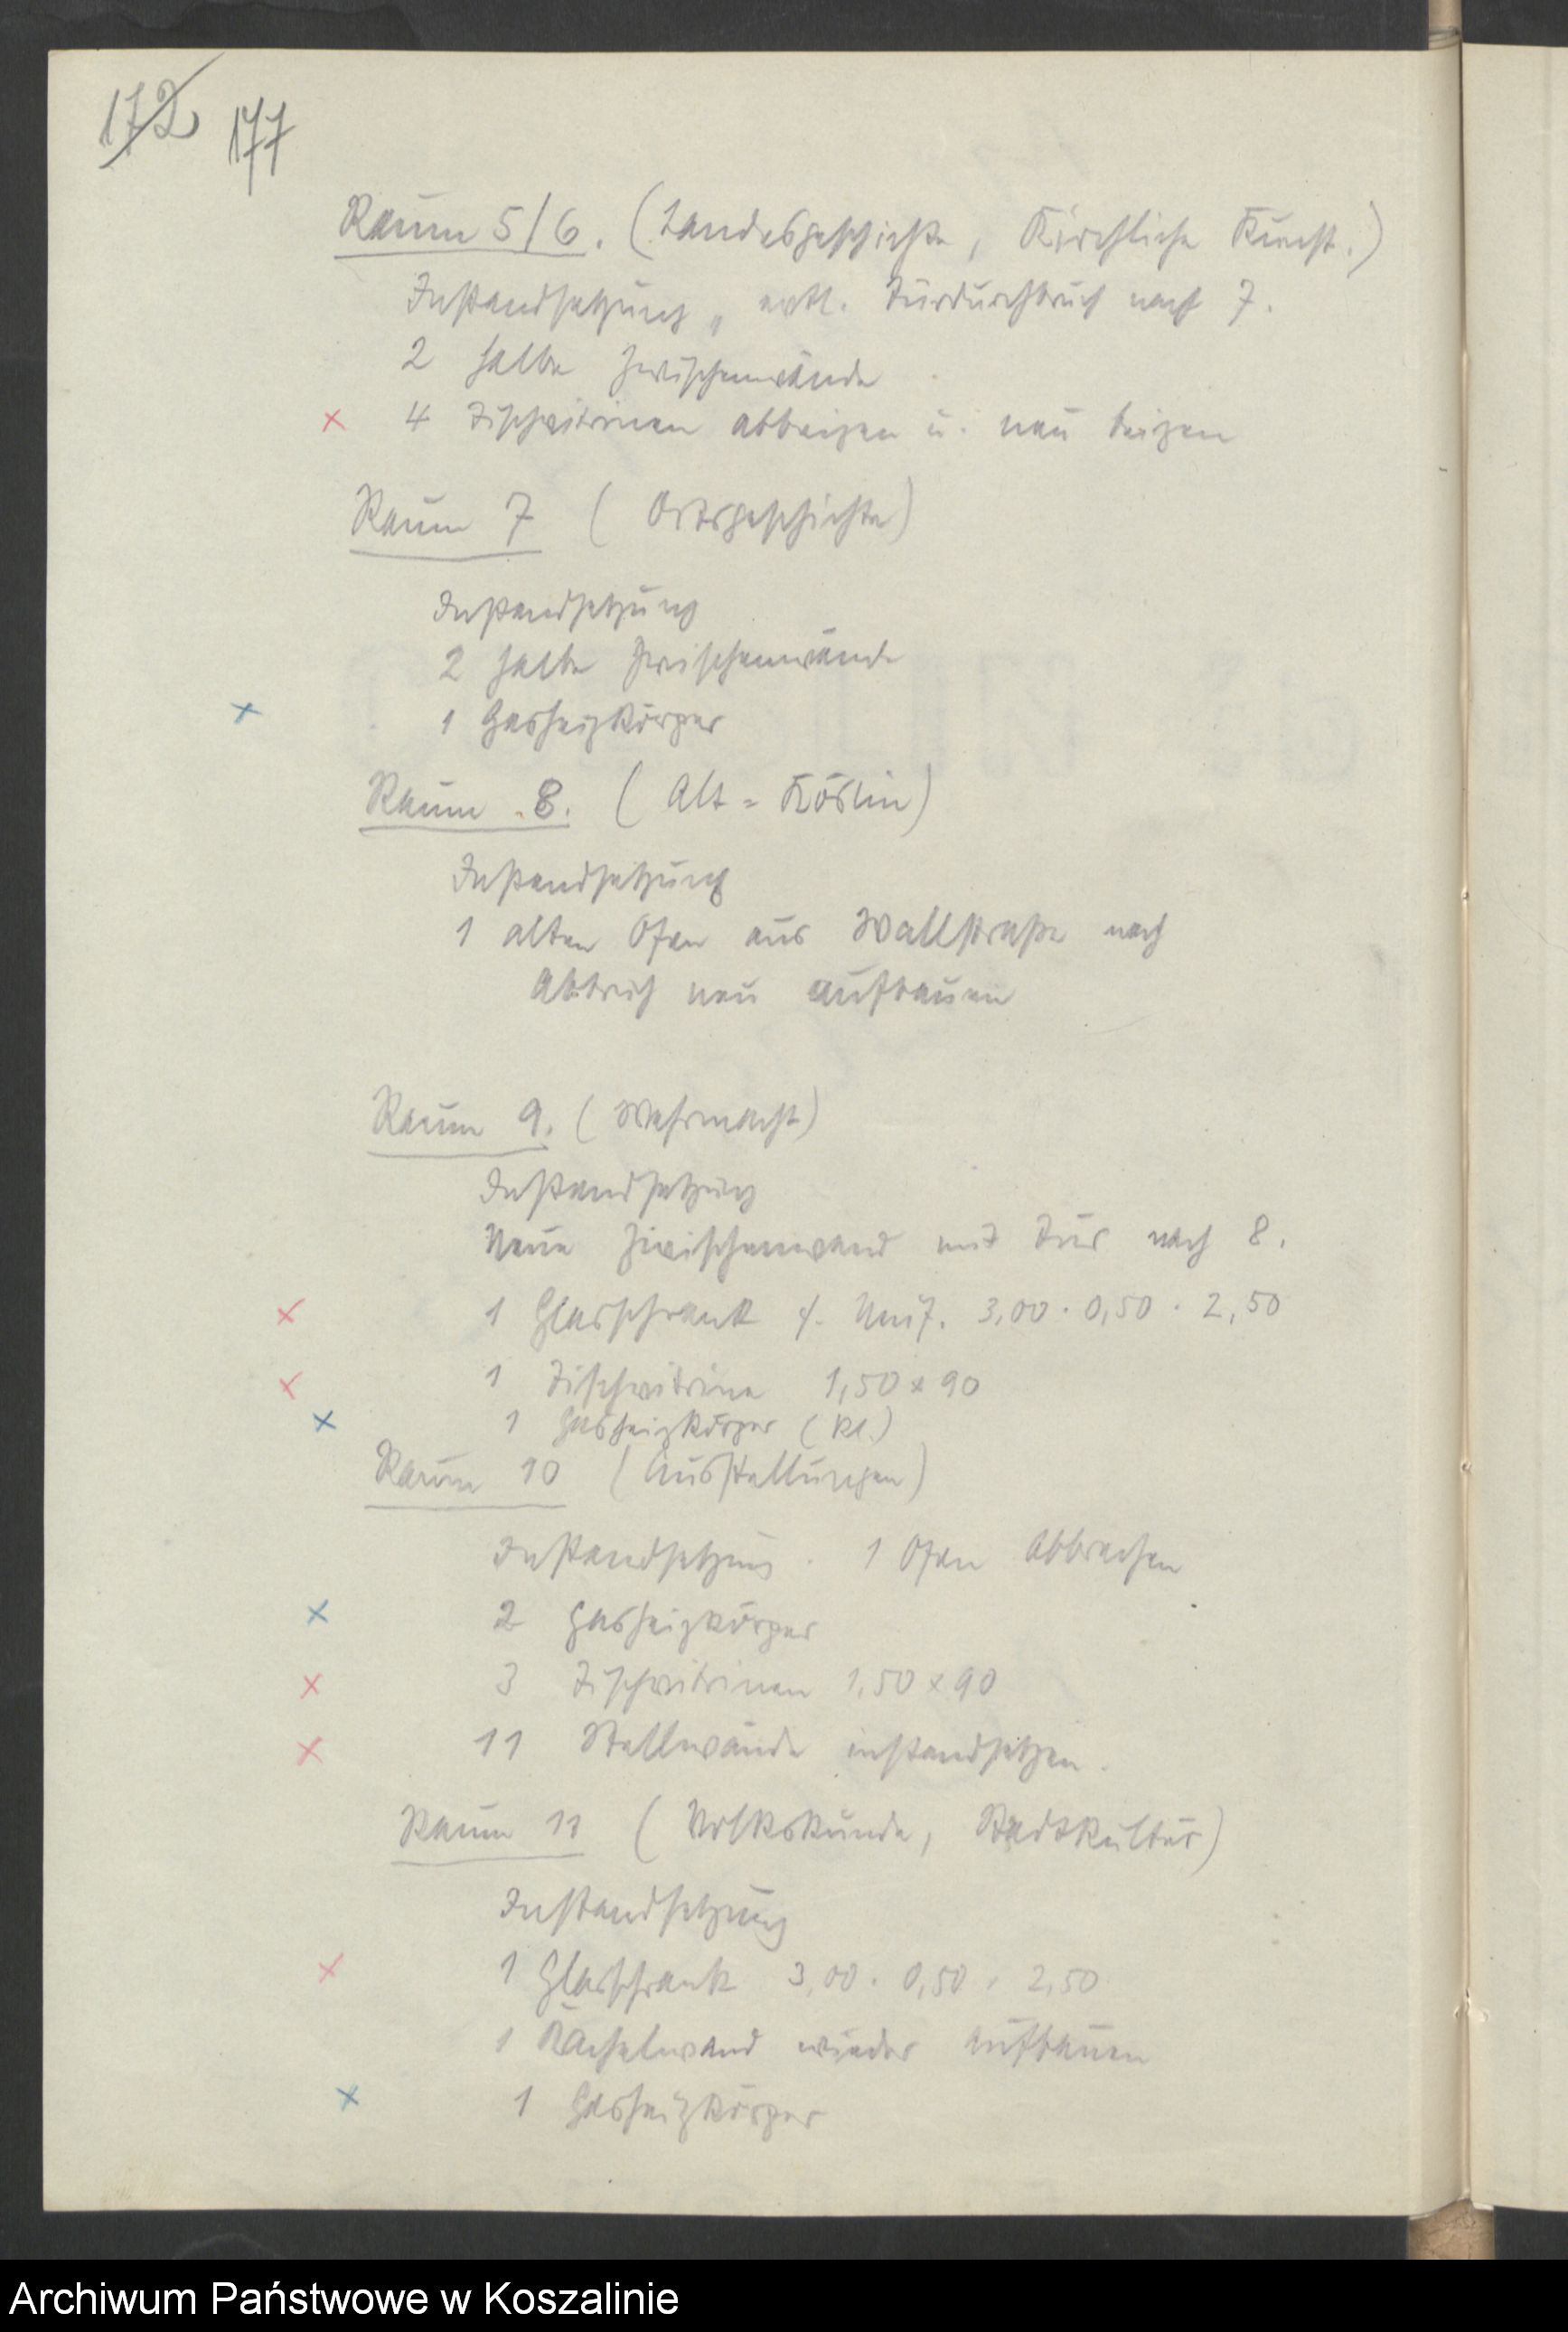 172 177
Raum 5/6. (Landesgeschichte, Kirchliche Kunst.)
Instandsetzung, evtl. Türdurchbruch nach 7.
2 halbe Zwischenwände
x 4 Tischvitrinen abbeizen u. neu beizen
Raum 7 (Ortsgeschichte)
Instandsetzung
2 halbe Zwischenwände
x 1 Gasheizkörper
Raum 8. (Alt=Köslin)
Instandsetzung
1 alten Ofen aus Wallstraße nach
Abbruch neu aufbauen
Raum 9. (Wehrmacht)
Instandsetzung
Neue Zwischenwand mit Tür nach 8.
x 1 Glasschrank f. Unif. 3,00 . 0,50 . 2,50
x 1 Tischvitrine 1,50 x 90
x 1 Gasheizkörper (kl.)
Raum 10 (Ausstellungen)
Instandsetzung . 1 Ofen abbrechen
x 2 Gasheizkörper
x 3 Tischvitrinen 1,50 x 90
x 11 Stellwände instandsetzen.
Raum 11 (Volkskunde, Stadtkultur)
Instandsetzung
x 1 Glasschrank 3,00 . 0,50 . 2,50
1 Kachelwand wieder aufbauen
x 1 Gasheizkörper
Archiwum Państwowe w Koszalinie